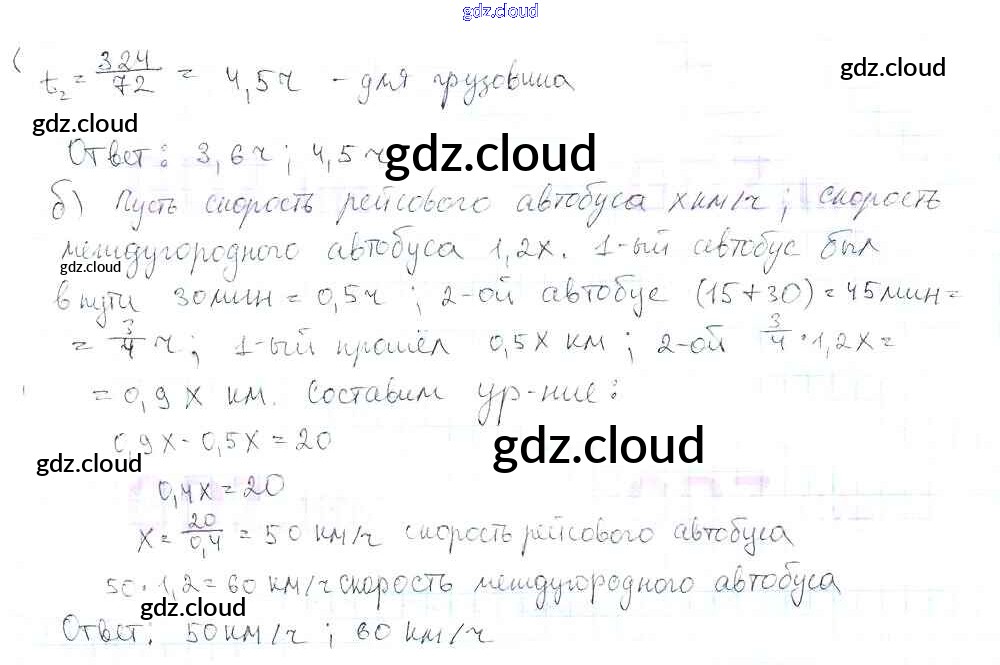 gdz.cloud
( t₂ = 324/72 = 4,5ч - для грузовика
gdz.cloud
gdz.cloud
Ответ: 3,6ч; 4,5ч
gdz.cloud
б) Пусть скорость рейсового автобуса x км/ч; скорость
междугородного автобуса 1,2x. 1-ый автобус был
gdz.cloud
в пути 30 мин = 0,5ч; 2-ой автобус (15+30) = 45 мин =
= 3/4 ч; 1-ый прошёл 0,5x км; 2-ой 3/4 · 1,2x =
= 0,9x км. Составим ур-ние:
0,9x - 0,5x = 20
gdz.cloud
gdz.cloud
0,4x = 20
x = 20/0,4 = 50 км/ч скорость рейсового автобуса
50 · 1,2 = 60 км/ч скорость междугородного автобуса
gdz.cloud
gdz.cloud
Ответ: 50 км/ч; 60 км/ч